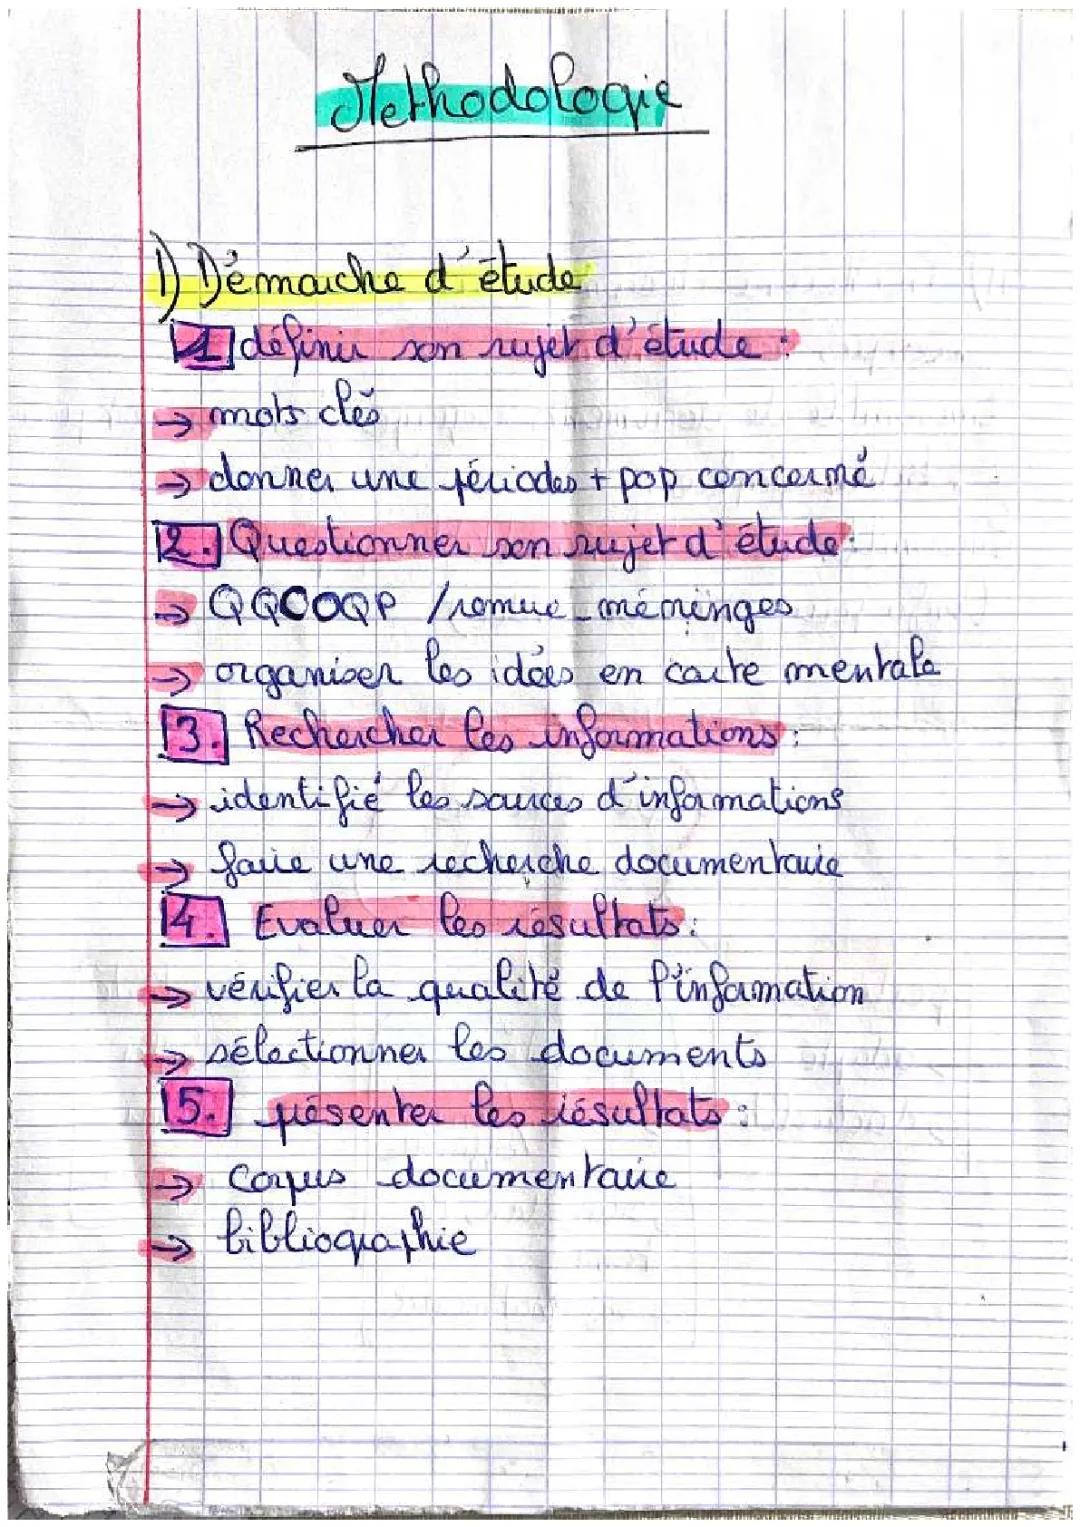 Methodologie
1) Démarche d'étude
1 définir son sujet d'étude :
→ mots clés
→ donner une périodes + pop concerné
2. Questionner son sujet d'étude :
→ QQCOQP / remue-méninges
→ organiser les idées en carte mentale
3. Rechercher les informations :
→ identifié les sources d'informations
→ faire une recherche documentaire
4. Evaluer les résultats :
→ vérifier la qualité de l'information
→ sélectionner les documents
5. présenter les résultats :
→ Corpus documentaire
→ bibliographie